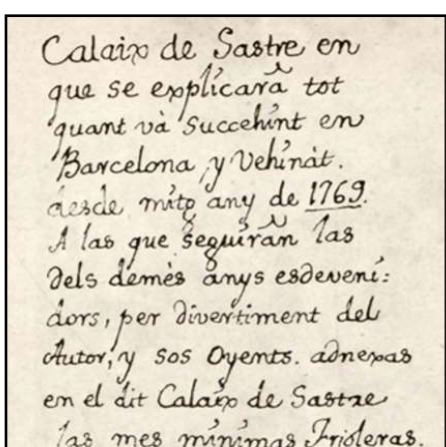 Calaix de Sastre en
que se explicarà tot
quant và Succehint en
Barcelona, y Vehinàt.
desde mitg any de 1769.
A las que seguiràn las
dels demès anys esdeveni:
dors, per divertiment del
Autor, y sos Oyents. adnexas
en el dit Calaix de Sastre
las mes minimas Frioleras.